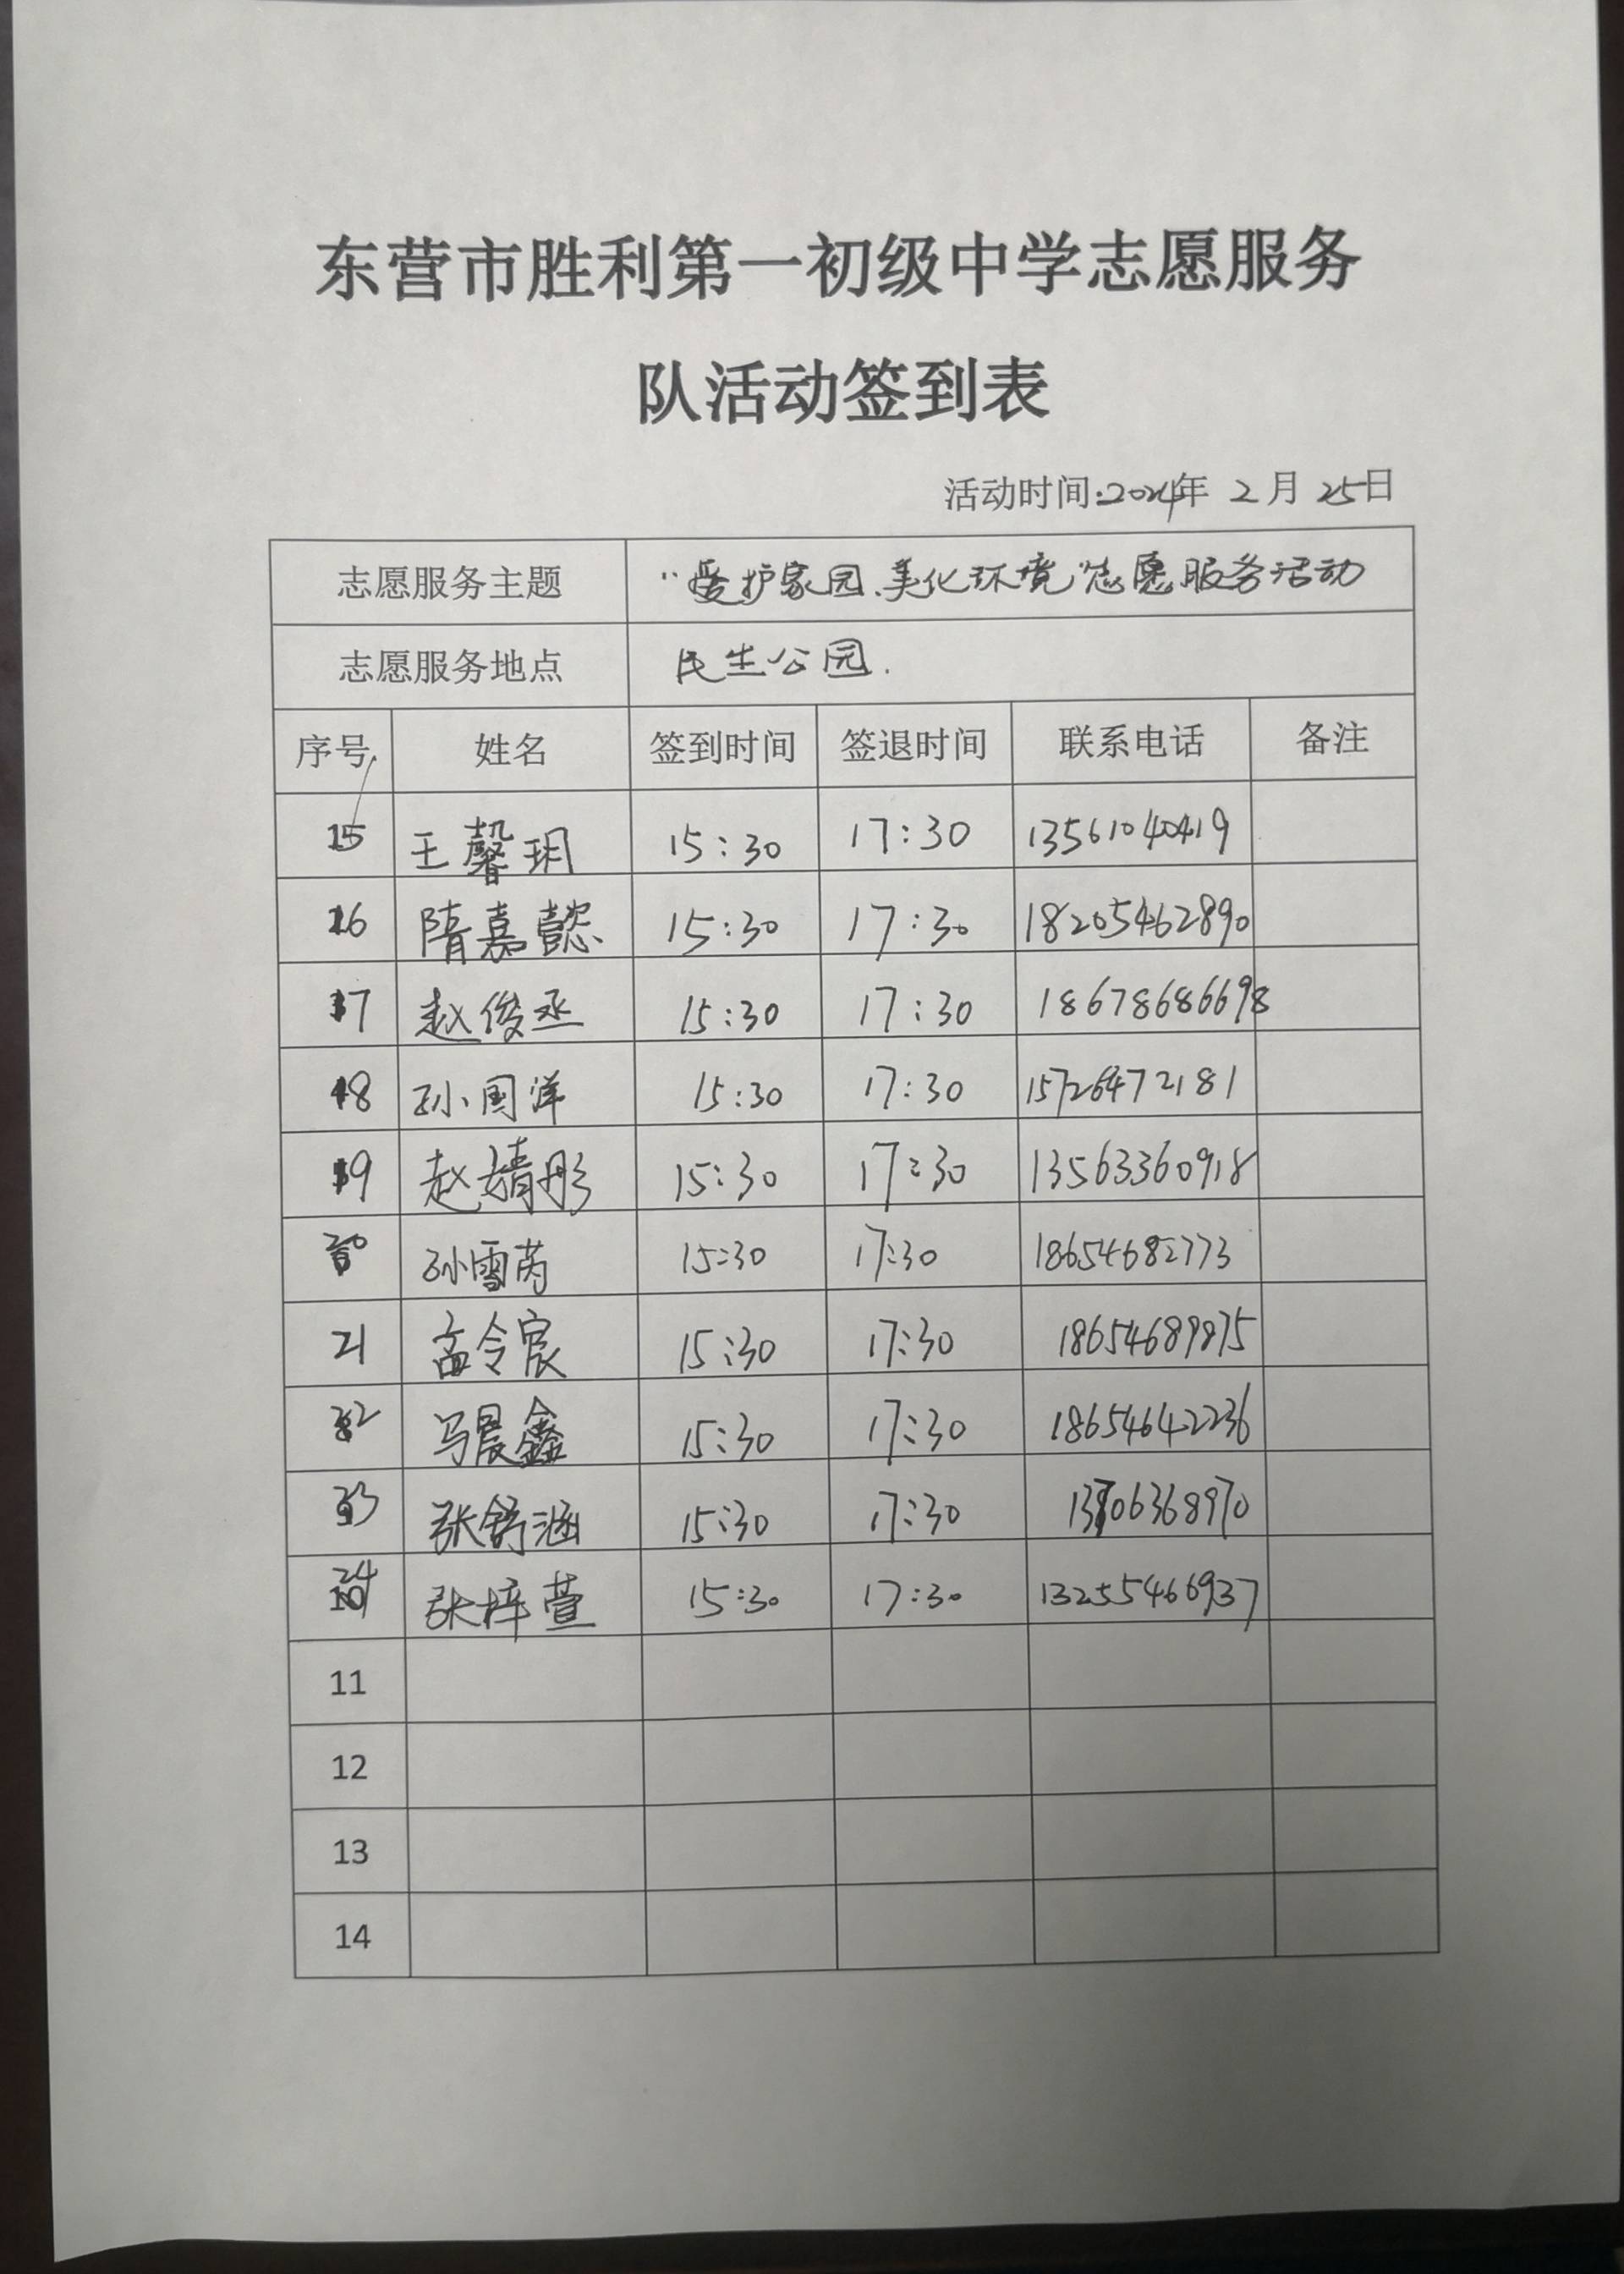 东营市胜利第一初级中学志愿服务
队活动签到表
活动时间:2024年 2 月 25日
志愿服务主题 “爱护家园、美化环境”志愿服务活动
志愿服务地点 民生公园.
序号 姓名 签到时间 签退时间 联系电话 备注
15 王馨玥 15:30 17:30 13561040419
16 隋嘉懿 15:30 17:30 18205462890
17 赵俊丞 15:30 17:30 18678686698
18 孙国洋 15:30 17:30 15726472181
19 赵婧彤 15:30 17:30 13563360918
20 孙雪芮 15:30 17:30 18654682773
21 孟令宸 15:30 17:30 18654689875
22 马晨鑫 15:30 17:30 18654642236
23 张舒涵 15:30 17:30
24 张梓萱 15:30 17:30 13255466937
11
12
13
14